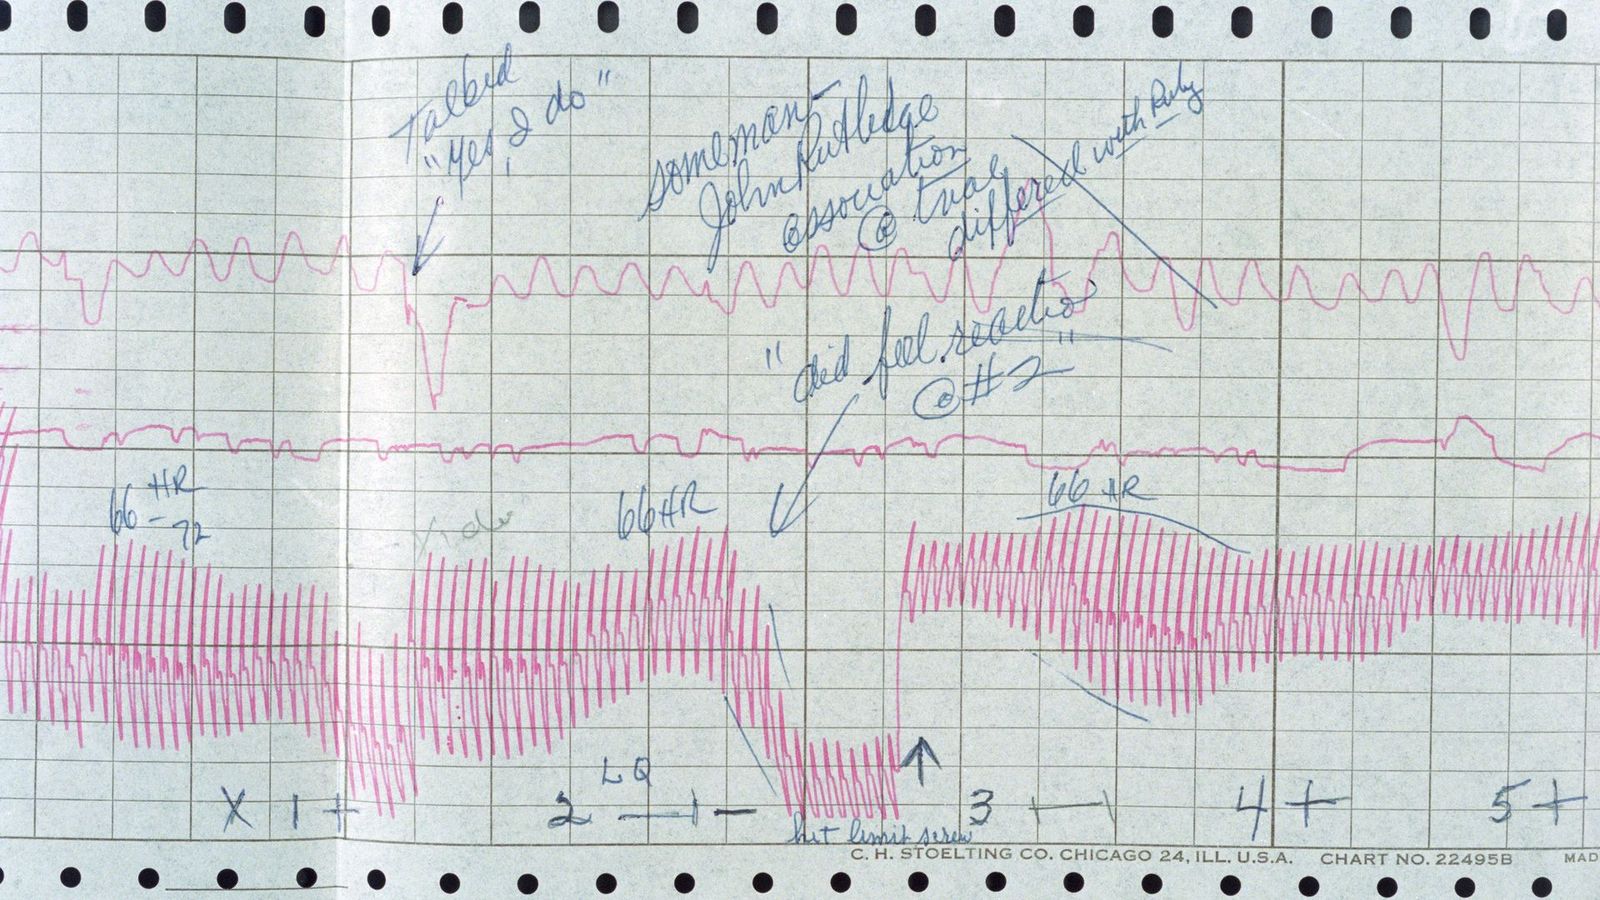 Talked
"Yes I do"
some man
John Rutledge
association
@ trial
differed with Ruby
"did feel reactio
@ #2"
66 - HR
72
66 HR
66 HR
LQ
X 1 +
2 —
3
4 +
5 +
hit limit screw
C. H. STOELTING CO. CHICAGO 24, ILL. U.S.A. CHART NO. 22495B MAD